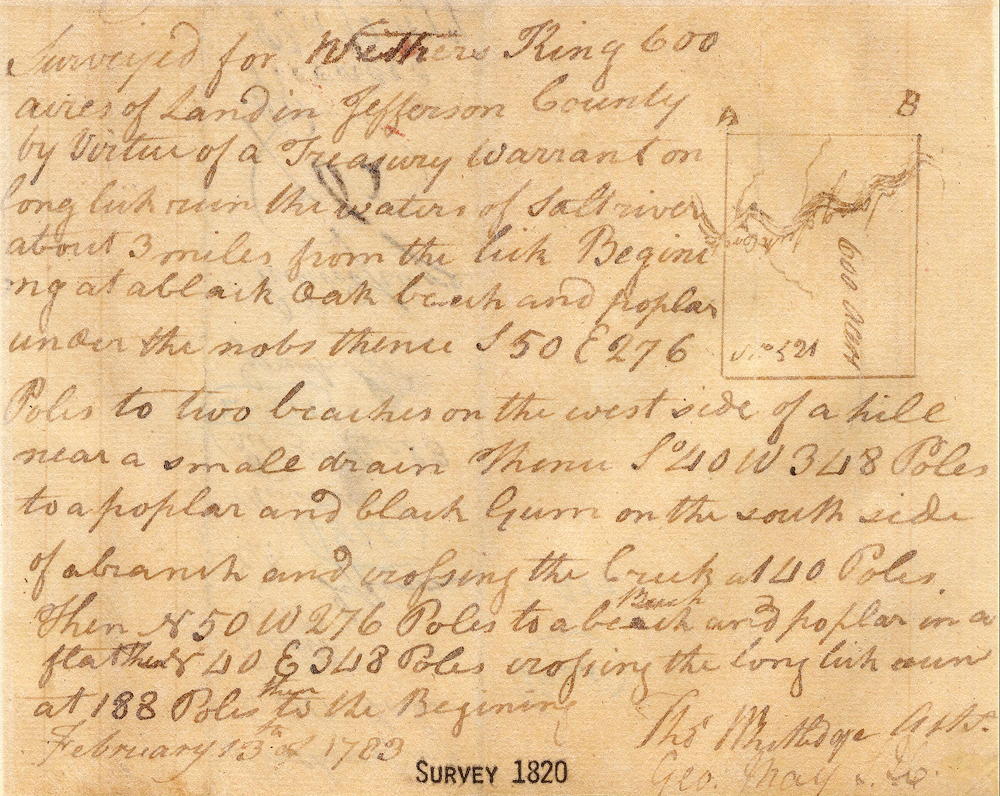 Surveyed for Wethers King 600
acres of Land in Jefferson County
by Virtue of a Treasury Warrant on
long lick run the waters of Salt river
about 3 miles from the lick Begini
ng at a black Oak beach and poplar
under the nobs thence S 50 E 276
Poles to two beaches on the west side of a hill
near a small drain thence So 40 W 348 Poles
to a poplar and black Gum on the south side
of a branch and crossing the Creek at 140 Poles
Then N 50 W 276 Poles to a beach Beach and poplar in a
flat then N 40 E 348 Poles crossing the long lick run
at 188 Poles then to the Begining
February 13th 1783
Tho Asst.
Geo. May
A B
600 acres
SURVEY 1820